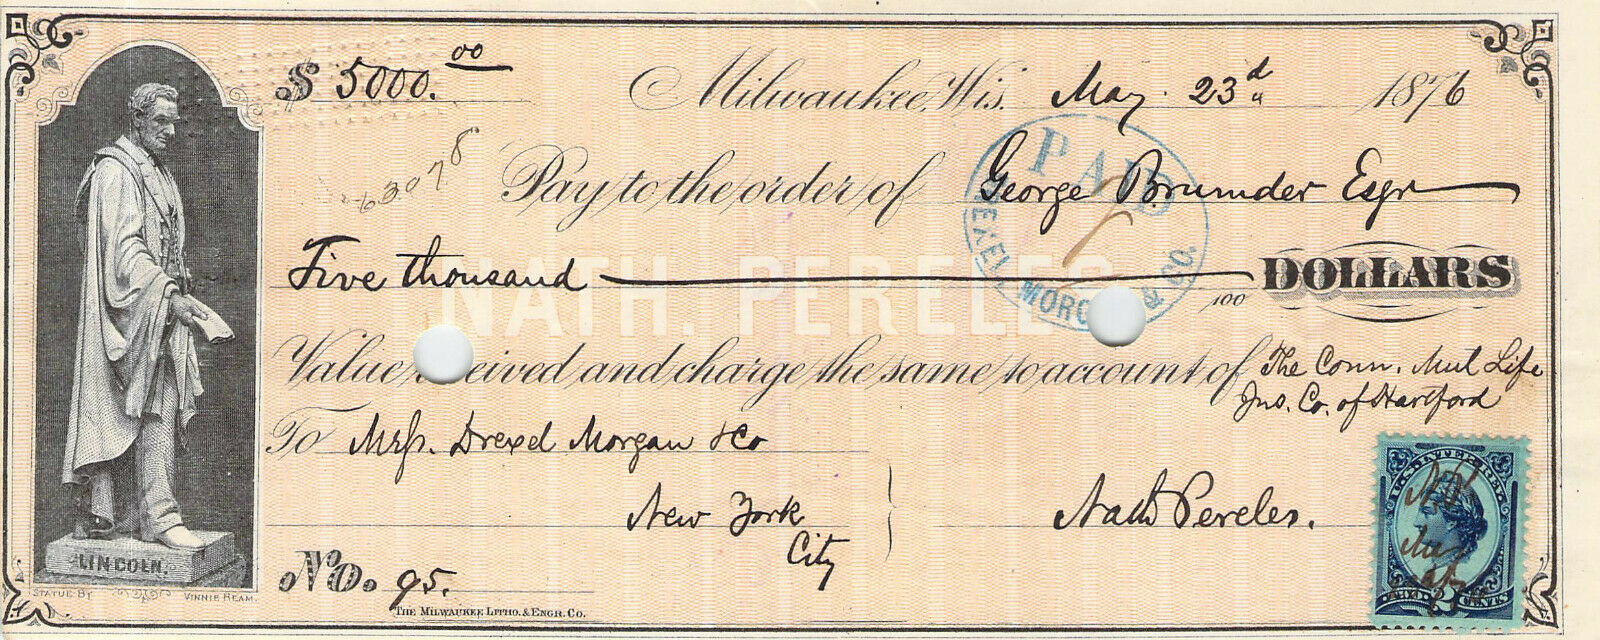 $ 5000.00
Milwaukee, Wis. May. 23d 1876
Pay to the order of George Brumder Esqr
Five thousand /100 DOLLARS
NATH. PERELES
PAID
DREXEL MORGAN & CO.
Value received and charge the same to account of The Conn. Mut Life
Ins. Co. of Hartford
To Mrss. Drexel Morgan & Co
New York
City
Nath Pereles.
No. 95.
LINCOLN.
STATUE BY VINNIE REAM.
THE MILWAUKEE LITHO. & ENGR. CO.
U.S. INTER. REV.
TWO 2 CENTS